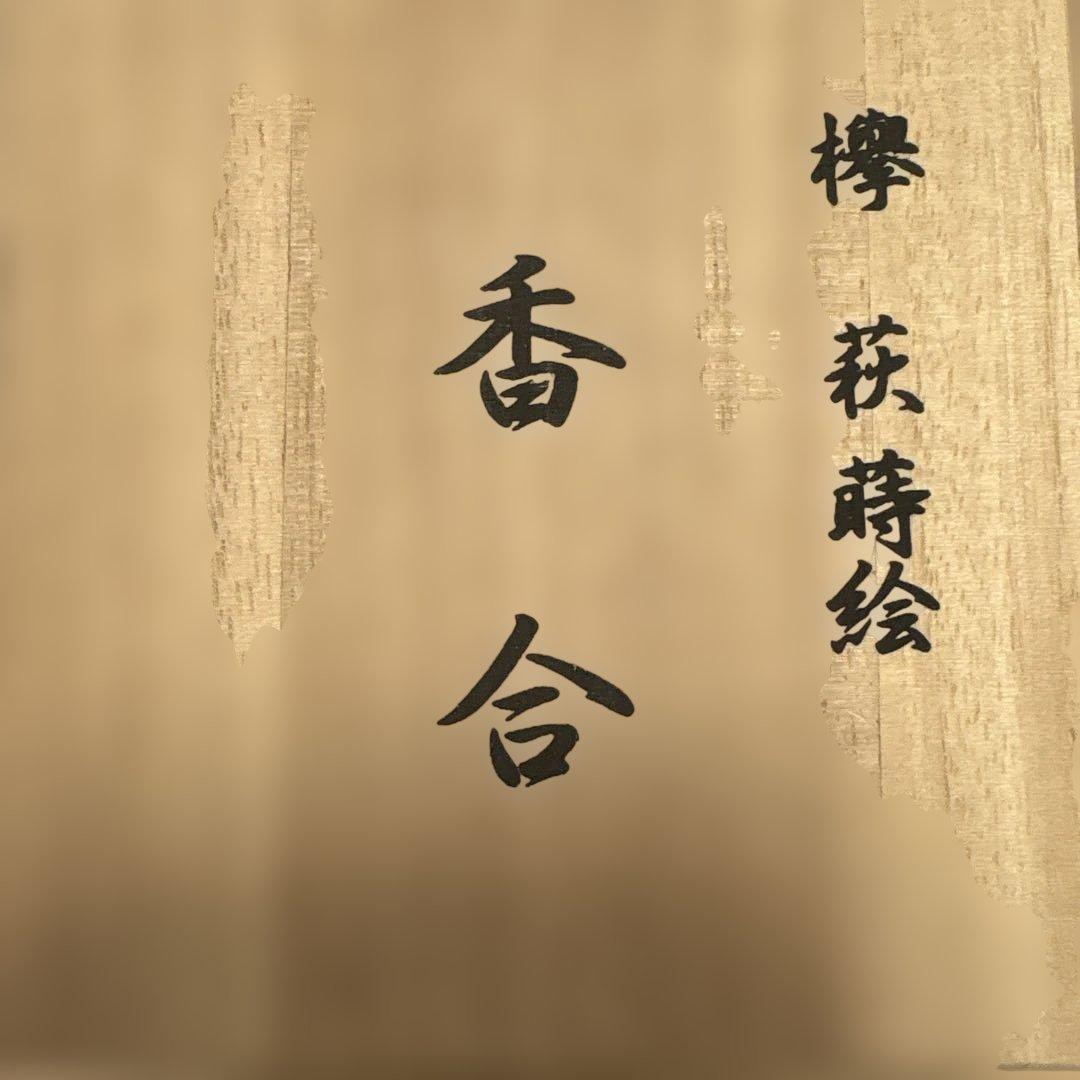 欅 萩蒔絵
香合